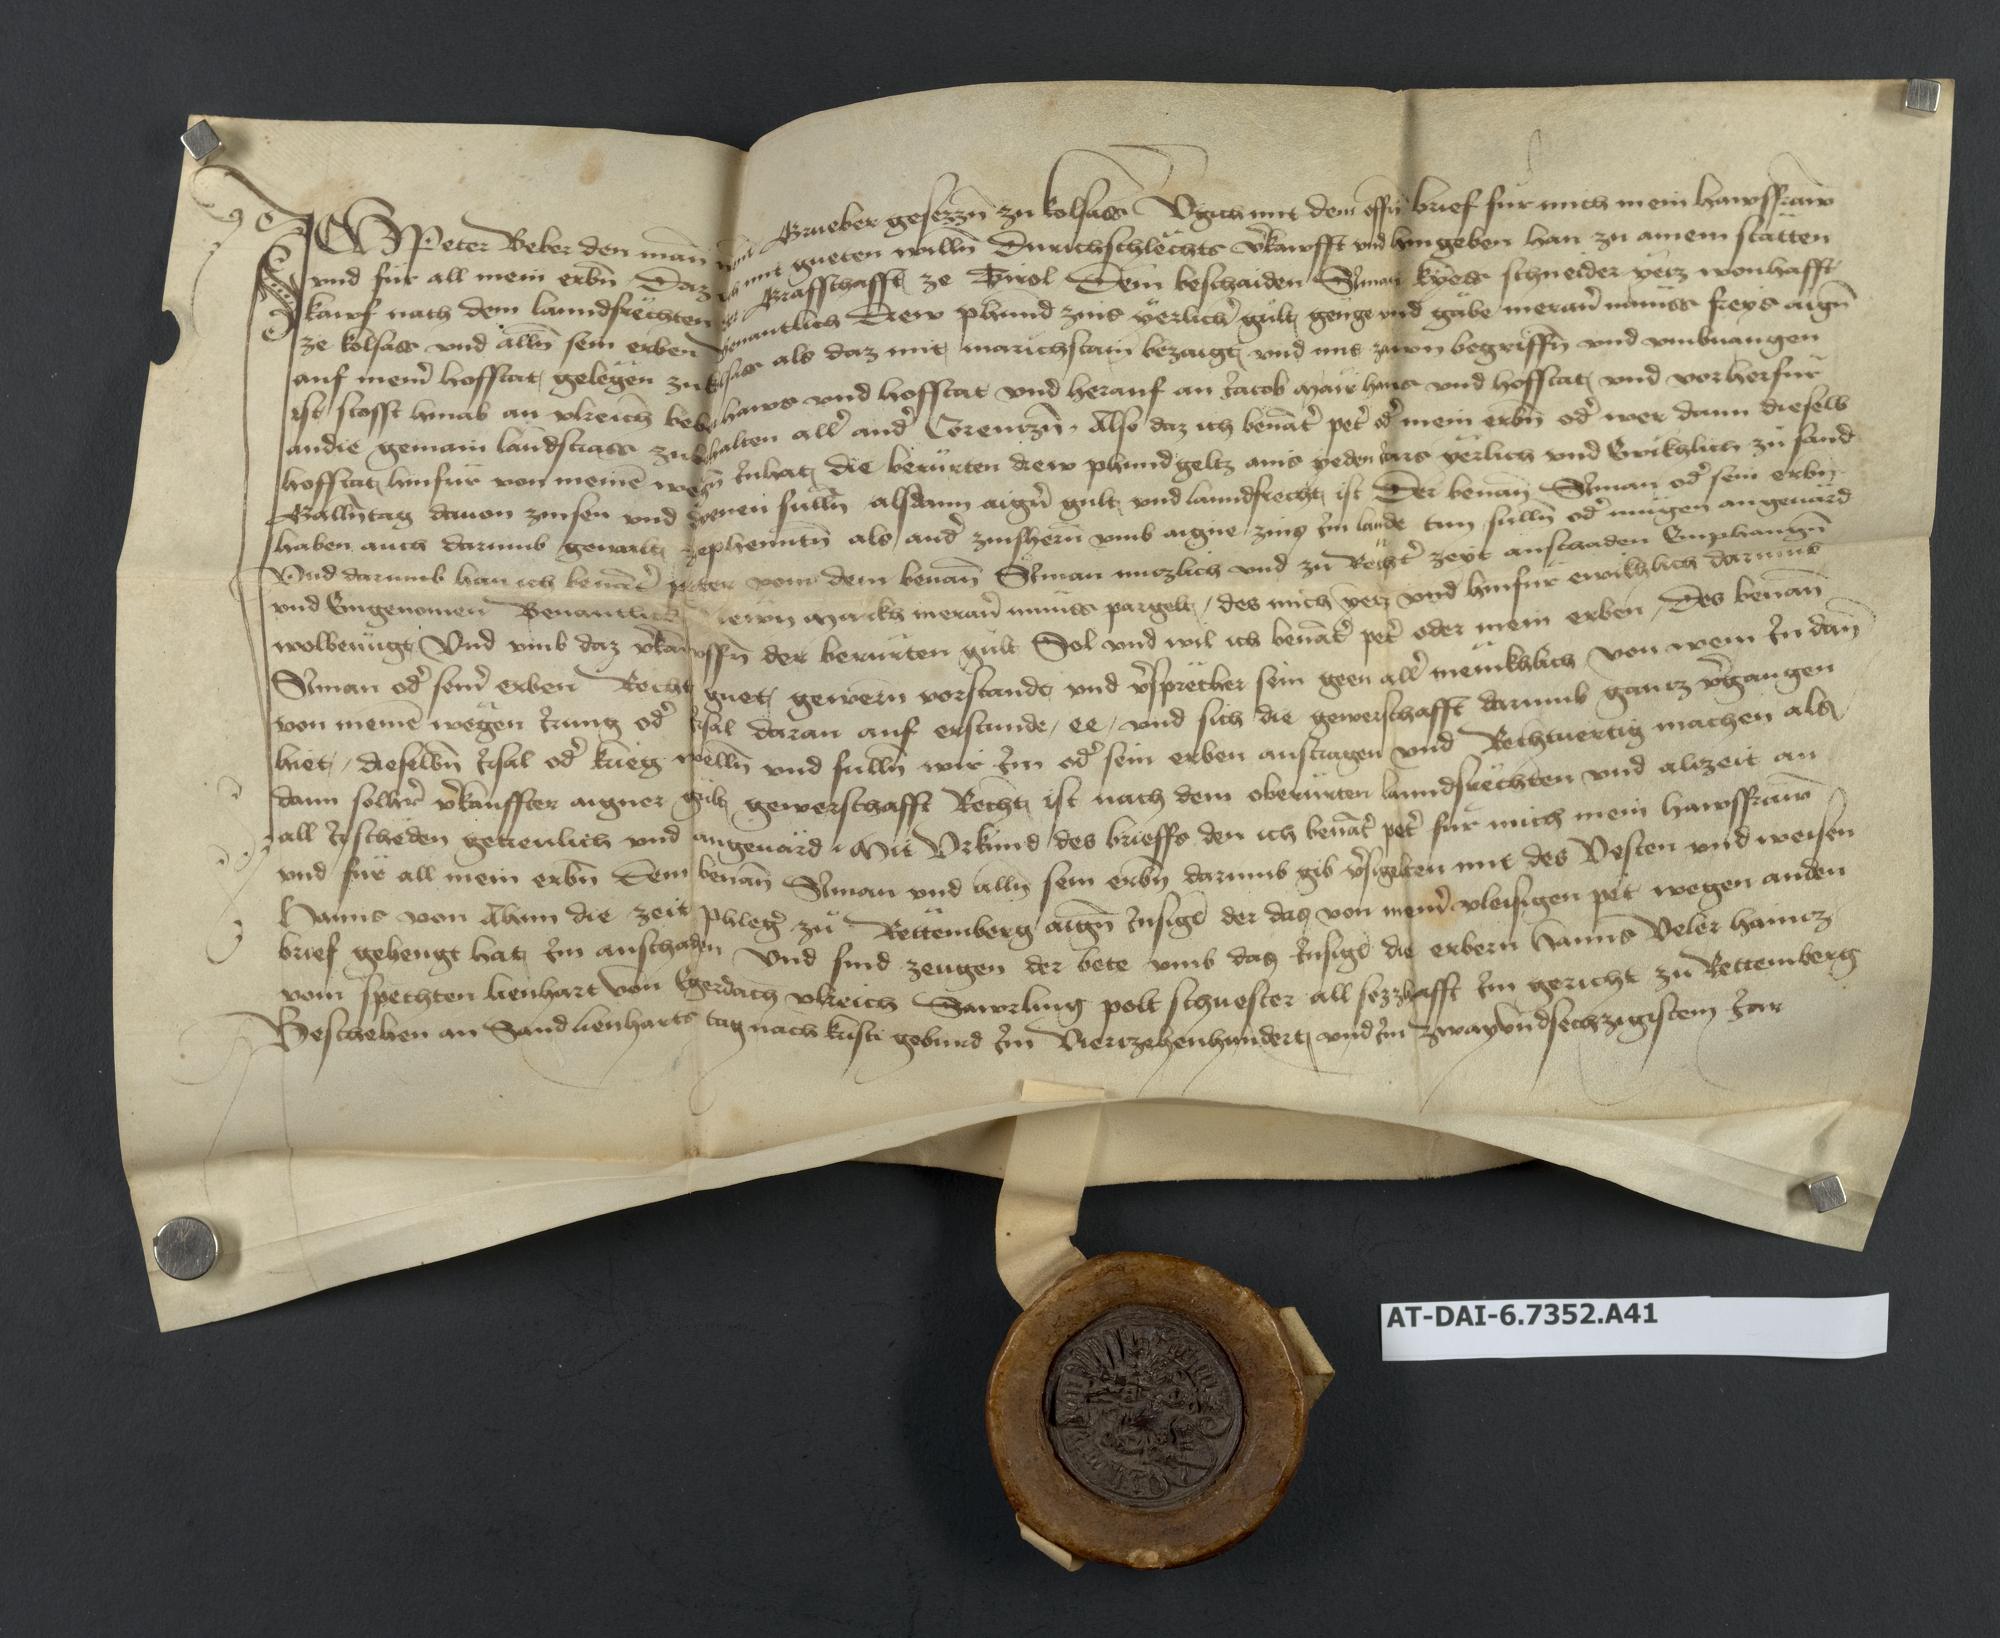 Ich Peter Weber den man nent Grueber gesezzn zu kolsass Vgich mit dem offn brief für mich mein hawsfraw
vnd für all mein erbn Daz ich mit gueten willn Durichschlechts vkawfft vnd hingeben han zu ainem stätten
kawf nach dem lanndsrechten der Grafschafft ze Tirol Dem beschaiden Siman schneider yetz wonhafft
ze kolsass vnd alln sein erben Benantlich Drew phund zins yerlicher gült genge vnd gäbe meraner münss freys aign
auf meiner hofstat gelegen zu kolsass als daz mit marichstain bezaigt vnd mit zawn begriffn vnd vmbuangen
ist stosst hinab an vlreich haws vnd hofstat vnd herauf an Jacob Mair haws vnd hofstat vnd vorherfür
andie gemain landstrass zu behalten aller ander Corentzn Also daz ich benant pet oder mein erbn oder wer dann dieselb
hofstat hinfür von meinen wegn Innhat die berürten drew phund geltz auss yeden Jars yerlich vnd Ewikhlich zu sand
Gallntag dauon zinsen vnd dienen sulln alsdann aigner gult vnd lanndsrecht ist Der benan Siman oder sein erbn
haben auch darumb gewalt zephenntn als ander zinshern vmb aigne zins Im lande tun sulln oder mügen angeuärd
Vnd darumb han ich benant peter von dem benan Siman nutzlich vnd zu Rechter zeyt anschaden Emphangn
vnd Eingenomen Benantlich Newn Markh meraner münss pargelt des mich yetz vnd hinfür ewikhlich darumb
wolbenügt Vnd vmb daz vkawffn der berürten gült Sol vnd wil ich benant pet oder mein erben Des benan
Siman oder seiner erben Recht guet gewern vorstande vnd versprecher sein geen aller menikhlich von wem In dan
von meinen wegen Irrung oder Irsal daran auf erstunde ee vnd sich die gewerschafft darumb gantz vergangen
hiet dieselbn Irsal oder krieg welln vnd sulln wir Im oder sein erben austragen vnd Rechtuertig machen als
dann solher vkauffter aigner gült gewerschafft Recht ist nach dem oberürten lanndsrechten vnd alczeit an
all Ir schäden getreulich vnd angeuärd Mit Vrkünd des brieffs den ich benant pet für mich mein hawsfraw
vnd für all mein erbn Dem benan Siman vnd alln sein erbn darumb gib versigelten mit des Vesten vnd weisen
Hanns von Ahaim die zeit phleger zu Rettemberg aign Insigl der das von meiner vleisigen pet wegen anden
brief gehengt hat Im anschaden Vnd sind zeugen der bete vmb das Insigl die erbern Hanns Veler haintz
vom spechten lienhart von Egerdach vlreich Sawrling polt schuester all sezzhafft Im gericht zu Rettemberg
Beschehen an Sand lienharts tag nach kristi geburd Im Viertzehenhundert vnd Im zwayvndsechzigistem Jar
AT-DAI-6.7352.A41